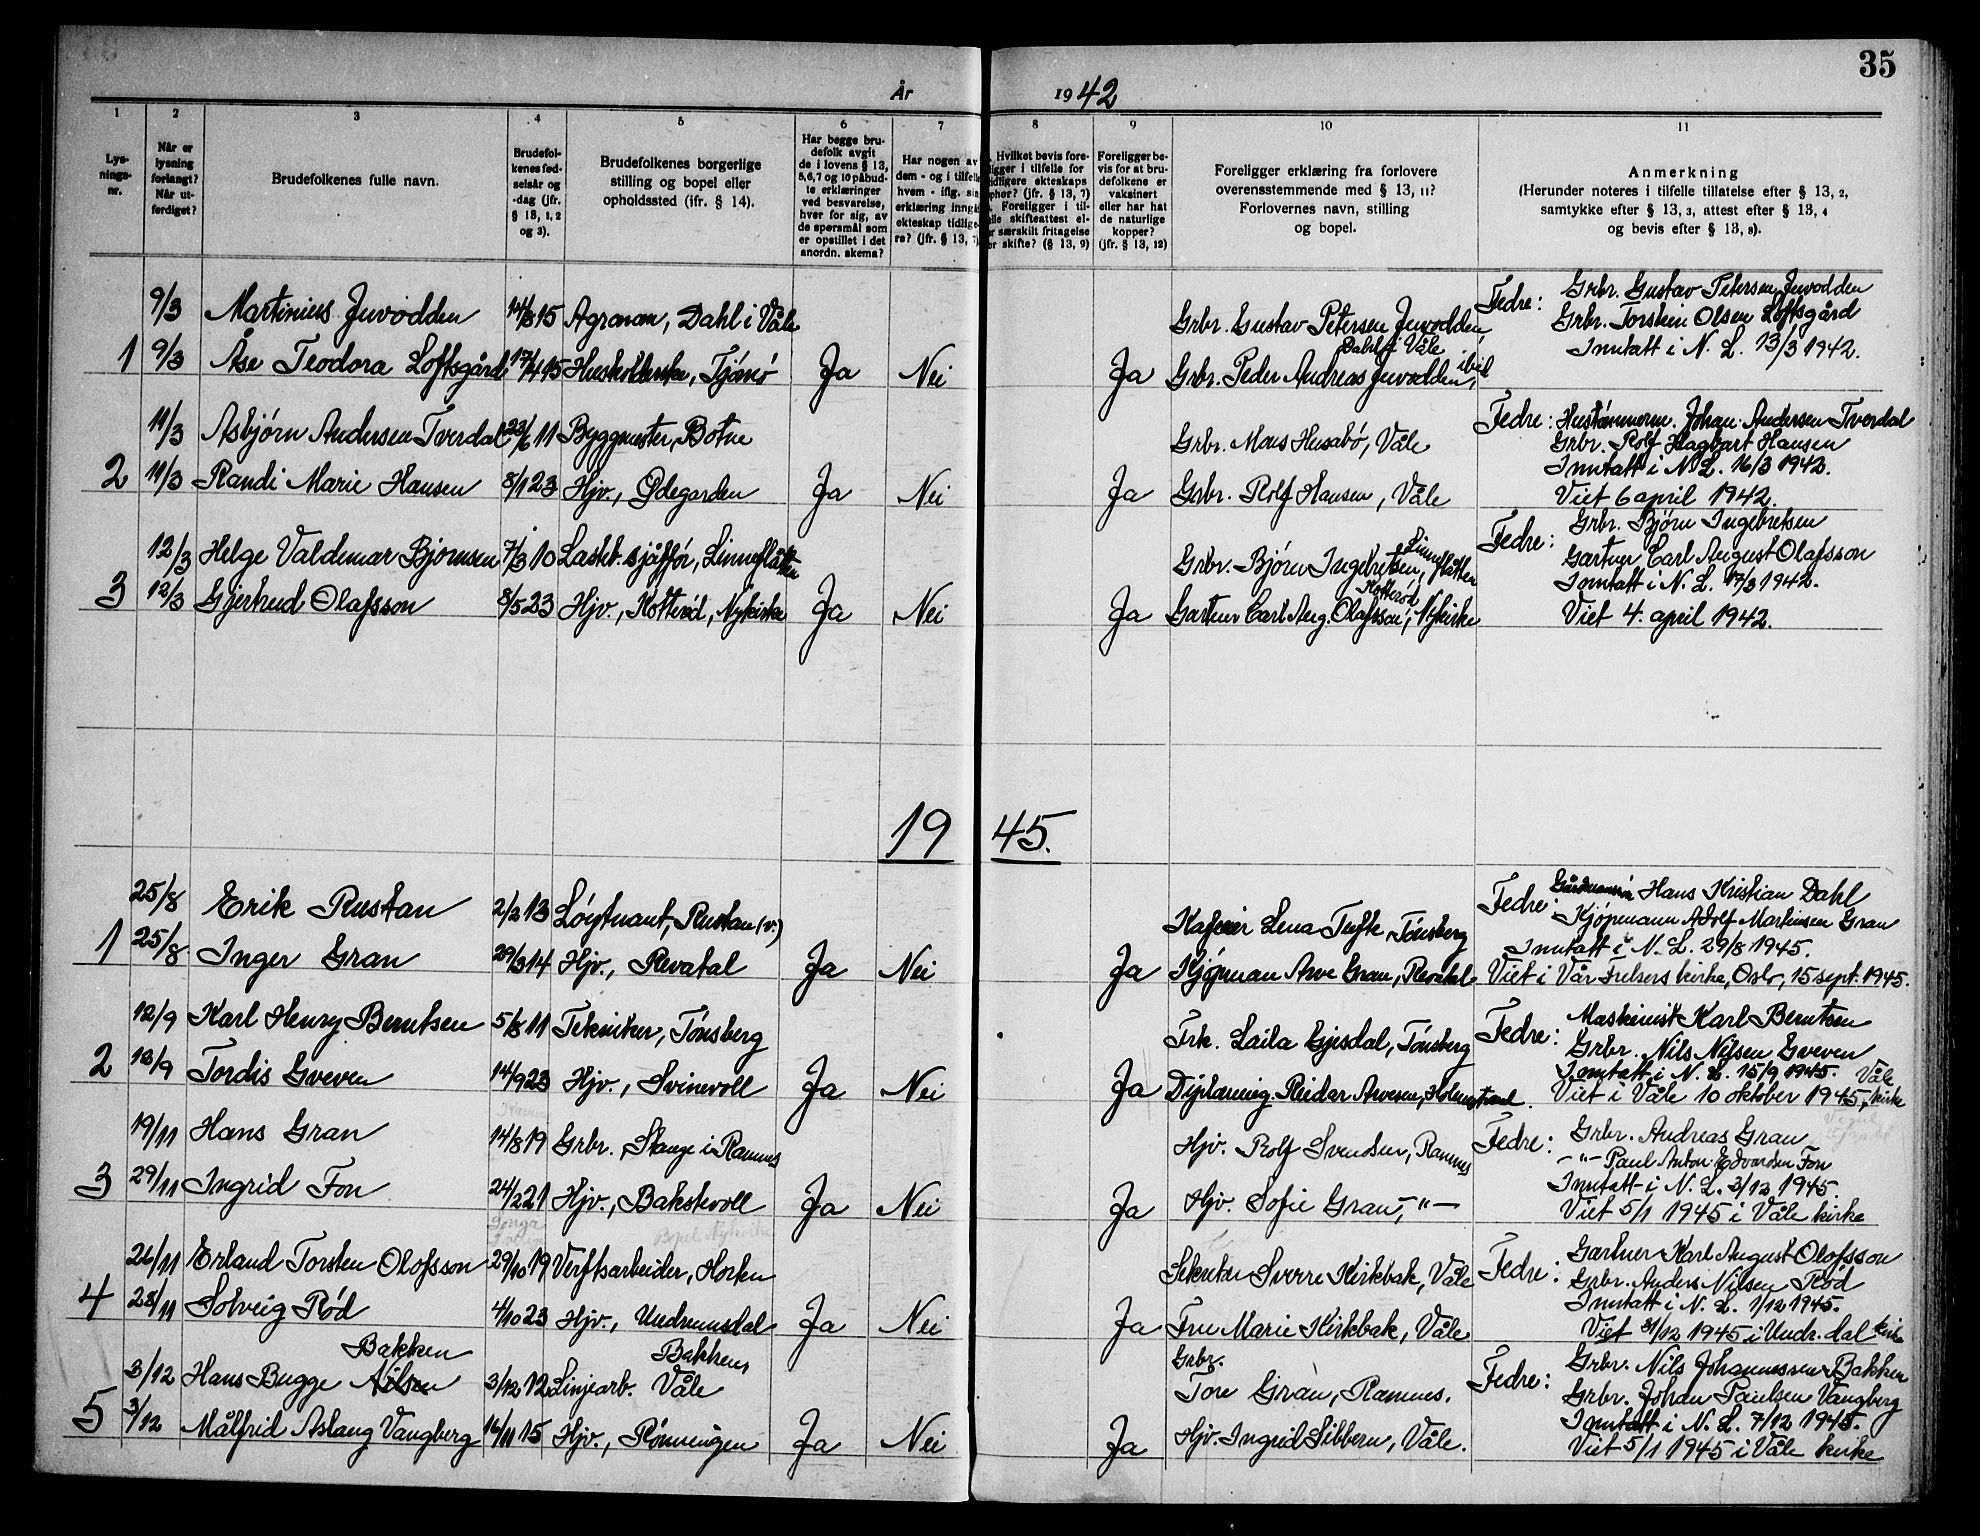 35
År 1942
1
2
3
4
5
6
7
8
9
10
11
Lys-
nings-
nr.
Når er
lysning
forlangt?
Når ut-
ferdiget?
Brudefolkenes fulle navn.
Brudefol-
kenes fød-
selsår og
-dag (jfr.
§ 13, 1, 2
og 3).
Brudefolkenes borgerlige
stilling og bopel eller
opholdssted (ifr. § 14).
Har begge bru-
defolk avgit
de i lovens § 13,
5,6,7 og 10 påbud-
te erklæringer
ved besvarelse,
hver for sig, av
de spørsmål som
er opstillet i det
anordn. skema?
Har nogen av
dem - og i tilfelle
hvem - iflg. sin
erklæring inngå
ekteskap tidlige-
re? (jfr. § 13, 7)
Hvilket bevis fore-
ligger i tilfelle for
idligere ekteskaps
ophør? (jfr. § 13, 7)
Foreligger i til-
elle skifteattest el-
er særskilt fritagelse
or skifte? (§ 13, 9)
Foreligger be-
vis for at bru-
defolkene er
vaksinert
eller har hat
de naturlige
kopper?
(jfr. § 13, 12)
Foreligger erklæring fra forlovere
overensstemmende med § 13, 11?
Forlovernes navn, stilling
og bopel.
Anmerkning
(Herunder noteres i tilfelle tillatelse efter § 13, 2,
samtykke efter § 13, 3, attest efter § 13, 4
og bevis efter § 13, 8).
9/3 Martinius Juvodden 14/8 15 Agronom, Dahl i Våle
Grbr. Gustav Petersen Juvodden, Dahl i Våle
Fedre: Grbr. Gustav Petersen Juvodden
Grbr. Torstein Olsen Loftsgård
Inntatt i N. L. 13/3 1942.
1 9/3 Åse Teodora Loftsgård 17/4 15 Husholderske, Tjømø Ja Nei Ja Grbr. Peder Andreas Juvodden, ibid
11/3 Asbjørn Andersen Tverdal 23/6 11 Byggmester, Botne
Grbr. Mons Husabø, Våle
Fedre: Hustømmerm. Johan Andersen Tverdal
Grbr. Rolf Hagbart Hansen
Inntatt i N. L. 16/3 1942.
2 11/3 Randi Marie Hansen 8/1 23 Hjv., Ødegarden Ja Nei Ja Grbr. Rolf Hansen, Våle
Viet 6 april 1942.
12/3 Helge Valdemar Bjørnsen 7/3 10 Lasteb. sjåffør, Linneflåtten
Grbr. Bjørn Ingebretsen, Linneflåtten
Fedre: Grbr. Bjørn Ingebretsen
Gartner Carl August Olafsson
Inntatt i N. L. 17/3 1942.
3 12/3 Gjertrud Olafsson 8/5 23 Hjv., Kotterød, Nykirke Ja Nei Ja Gartner Carl Aug. Olafsson, Kotterød, Nykirke
Viet 4. april 1942.
1945.
25/8 Erik Rustan 2/2 13 Løytnant, Rustan (v.)
Kaserer Lena Tufte, Tønsberg
Fedre: Hans Kristian Dahl
Kjøpmann Adolf Martinsen Gran
Inntatt i N. L. 29/8 1945.
1 25/8 Inger Gran 29/3 14 Hjv., Revetal Ja Nei Ja Kjøpman Arve Gran, Revetal
Viet i Vår Frelsers kirke, Oslo, 15 sept. 1945.
12/9 Karl Henry Berntsen 5/8 11 Tekniker, Tønsberg
Frk. Laila Gjesdal, Tønsberg
Fedre: Maskinist Karl Berntsen
Grbr. Nils Nilsen Gveven
Inntatt i N. L. 15/9 1945.
2 13/9 Tordis Gveven 14/9 23 Hjv., Svinevoll Ja Nei Ja Diploming. Reidar Arvesen, Holmestrand.
Viet i Våle 10 oktober 1945, Våle kirke
19/11 Hans Gran 14/8 19 Grbr., Stange i Ramnes
Hjv. Rolf Svendsen, Ramnes
Fedre: Grbr. Andreas Gran
-"- Paul Anton Edvardsen Fon
Inntatt i N. L. 3/12 1945.
3 29/11 Ingrid Fon 24/2 21 Hjv., Bakstevoll Ja Nei Ja Hjv. Sofie Gran, -"-
Viet 5/1 1945 i Våle kirke
26/11 Erland Torsten Olofsson 29/10 19 Verftsarbeider, Horten
Bopel Nykirke
Sekretær Sverre Kirkbak, Våle
Fedre: Gartner Karl August Olofsson
Grbr. Anders Nilsen Rød
Inntatt i N. L. 1/12 1945.
4 28/11 Solveig Rød 4/10 23 Hjv., Undrumsdal Ja Nei Ja Fru Marie Kirkbak, Våle
Viet 31/12 1945 i Undr. dal kirke
3/12 Hans Bugge Nilsen Bakken 3/12 12 Linjearb. Bakken, Våle
Grbr. Tore Gran, Ramnes.
Fedre: Grbr. Nils Johannessen Bakken
Grbr. Johan Paulsen Vangberg
Inntatt i N. L. 7/12 1945.
5 3/12 Målfrid Aslaug Vangberg 16/11 15 Hjv., Rønningen Ja Nei Ja Hjv. Ingrid Sibbern, Våle.
Viet 5/1 1945 i Våle kirke